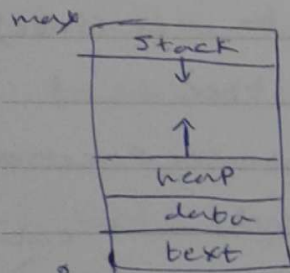 max
Stack
heap
data
text